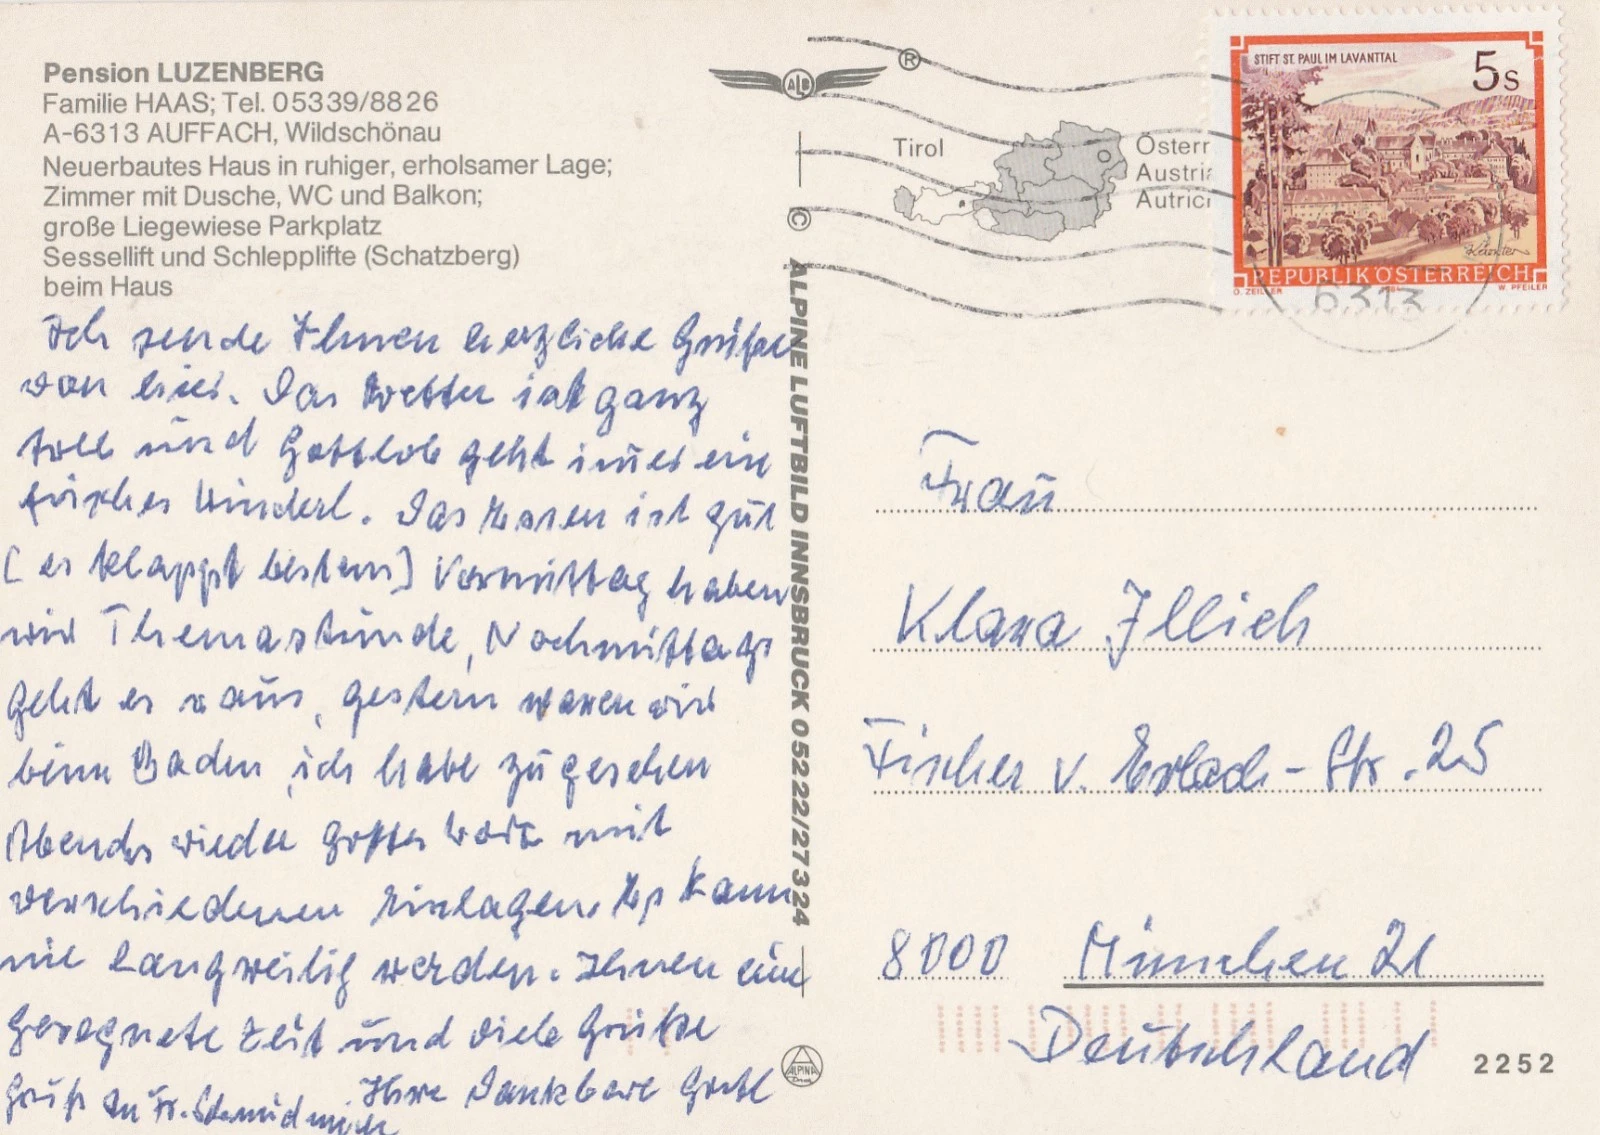 Pension LUZENBERG
Familie HAAS; Tel. 05339/8826
A-6313 AUFFACH, Wildschönau
Neuerbautes Haus in ruhiger, erholsamer Lage;
Zimmer mit Dusche, WC und Balkon;
große Liegewiese Parkplatz
Sessellift und Schlepplifte (Schatzberg)
beim Haus
Ich sende Ihnen herzliche Grüße
von hier. Das Wetter ist ganz
toll und Gottlob geht immer ein
frisches Winderl. Das Essen ist gut
[es klappt bestens] Vormittag haben
wir Themastunde, Nochmittags
geht es raus, gestern waren wir
beim Baden, ich habe zugesehen
Abends wieder Gottes Wort mit
verschiedenen Einlagen. Es kann
nie langweilig werden. Ihnen eine
gesegnete Zeit und viele Grüße
Ihre Dankbare Gretl
Gruß an Fr.
ALPINE LUFTBILD INNSBRUCK 05222/27324
ALPINA
ALB
®
©
Tirol
Österr
Austria
Autric
STIFT ST. PAUL IM LAVANTTAL
5s
REPUBLIK ÖSTERREICH
O. ZEILLER
W. PFEILER
Kärnten
6313
Frau
Klara Illich
Fischer v. Erlach-Str. 25
8000 München 21
Deutschland
2252